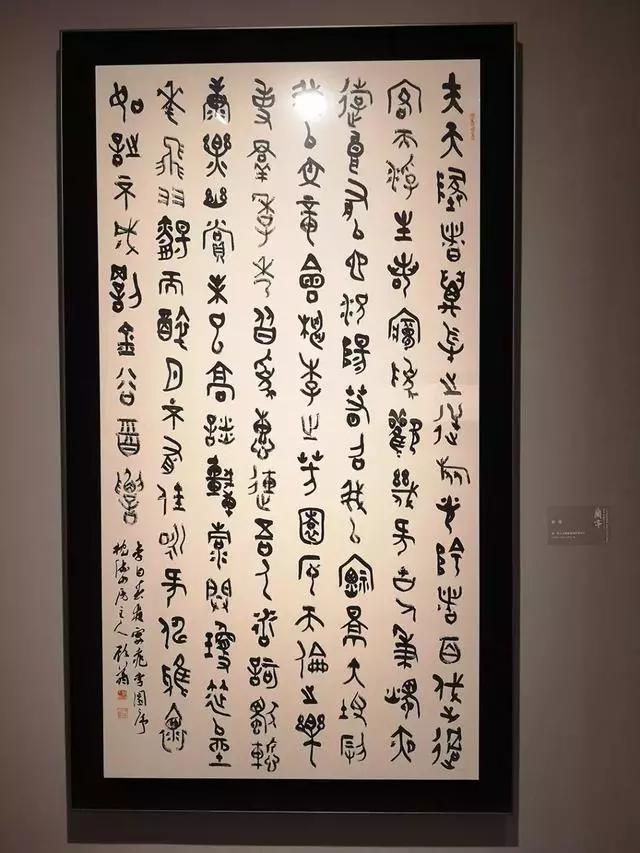 夫天地者萬物之逆旅光陰者百代之過
客而浮生若夢為歡幾何古人秉燭夜
遊良有以也況陽春召我以煙景大塊假
我以文章會桃李之芳園序天倫之樂
事羣季秀皆為惠連吾人詠歌獨慚
康樂幽賞未已高談轉清開瓊筵以坐
花飛羽觴而醉月不有佳詠何伸雅懷
如詩不成罰金谷酒數
李白春夜宴桃李園序
主人
蘭亭